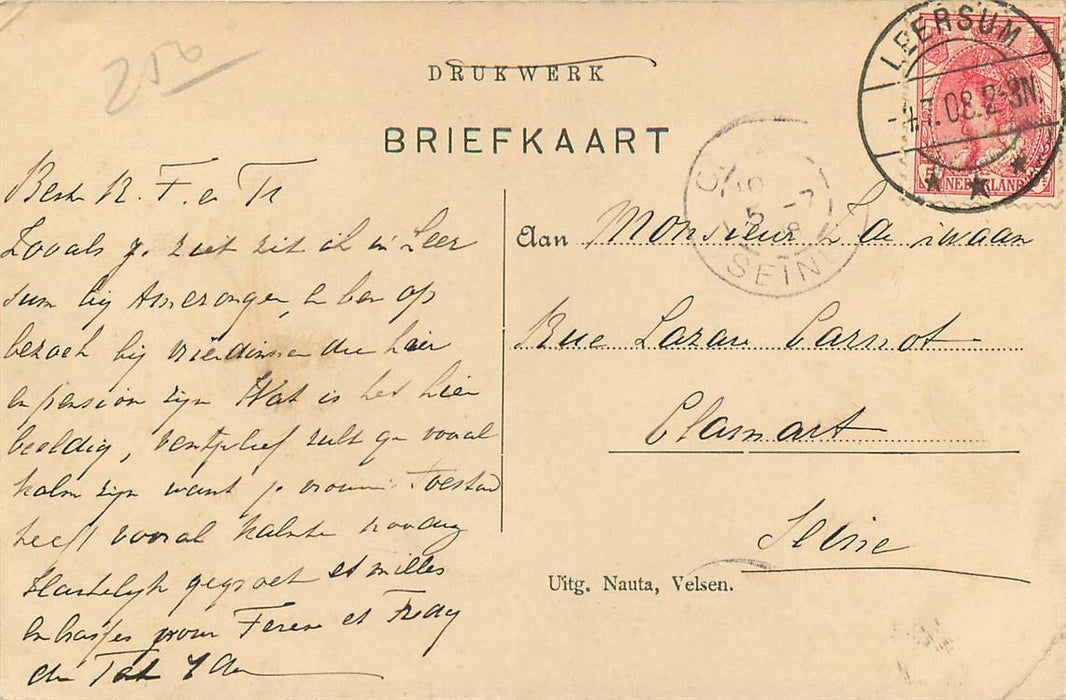 256
DRUKWERK
BRIEFKAART
LEERSUM
-4.7.08.2-3N.
NEDERLAND
5 -7
SEINE
Zooals je ziet zit ik in Leer
sum bij Amerongen, ben op
bezoek bij vriendinnen die hier
en pension zijn Wat is het hier
beeldig, zult ge vooral
kalm zijn want je vrouws toestand
heeft vooral kalmte noodig
Hartelijk gegroet et milles
embrasses pour et Fredy
de
Aan Monsieur Zwaan
Rue Lazare Carnot
Clamart
Seine
Uitg. Nauta, Velsen.